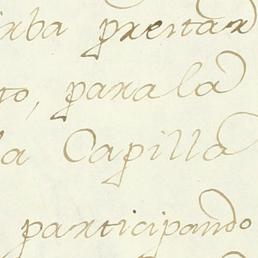 prestar
to, para la
la Capilla
participando